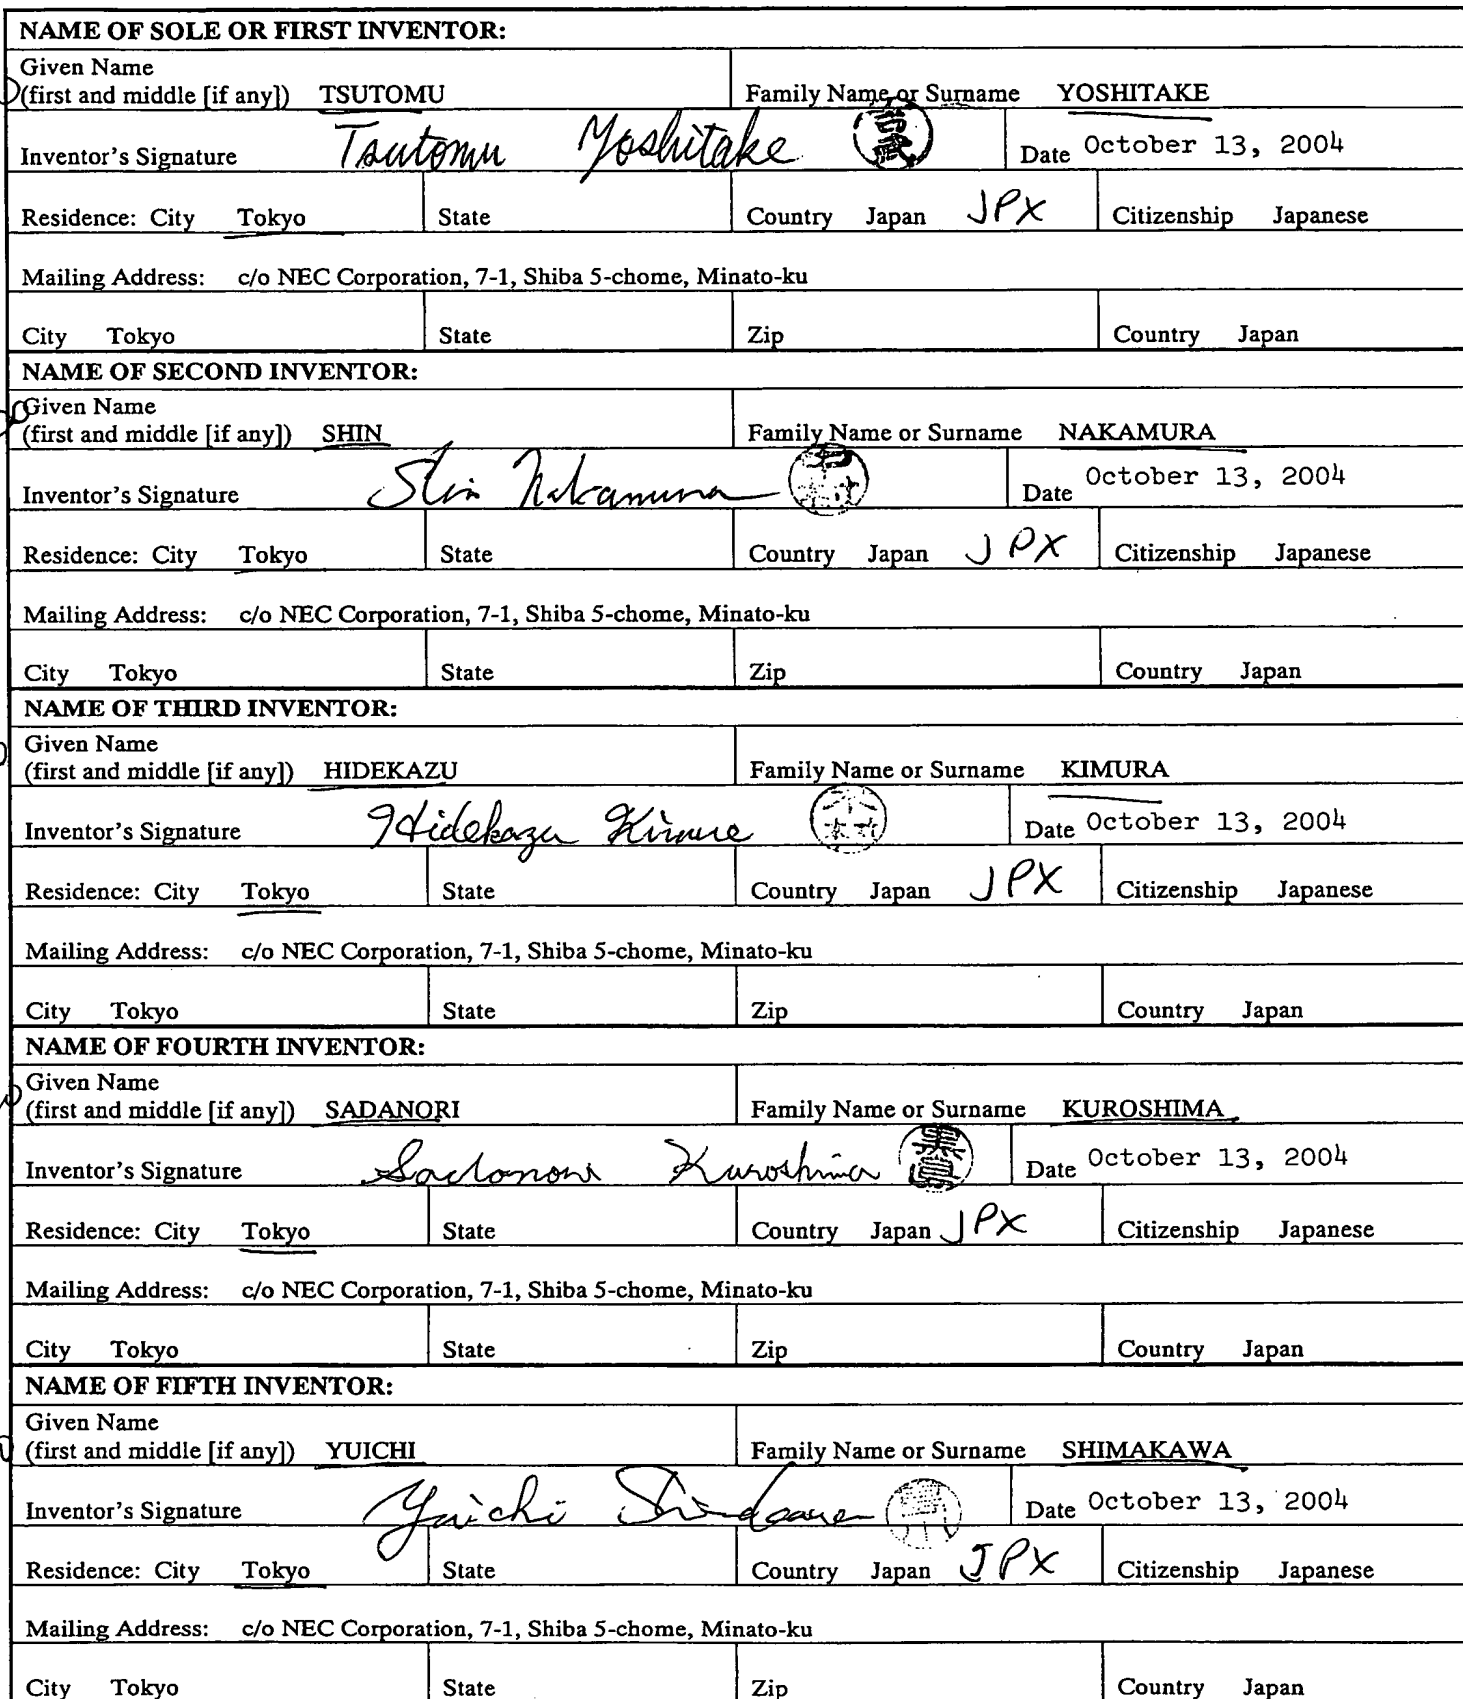 NAME OF SOLE OR FIRST INVENTOR:
Given Name
(first and middle [if any]) TSUTOMU Family Name or Surname YOSHITAKE
Inventor's Signature Tsutomu Yoshitake Date October 13, 2004
Residence: City Tokyo State Country Japan JPX Citizenship Japanese
Mailing Address: c/o NEC Corporation, 7-1, Shiba 5-chome, Minato-ku
City Tokyo State Zip Country Japan
NAME OF SECOND INVENTOR:
Given Name
(first and middle [if any]) SHIN Family Name or Surname NAKAMURA
Inventor's Signature Shin Nakamura Date October 13, 2004
Residence: City Tokyo State Country Japan JPX Citizenship Japanese
Mailing Address: c/o NEC Corporation, 7-1, Shiba 5-chome, Minato-ku
City Tokyo State Zip Country Japan
NAME OF THIRD INVENTOR:
Given Name
(first and middle [if any]) HIDEKAZU Family Name or Surname KIMURA
Inventor's Signature Hidekazu Kimura 木村 Date October 13, 2004
Residence: City Tokyo State Country Japan JPX Citizenship Japanese
Mailing Address: c/o NEC Corporation, 7-1, Shiba 5-chome, Minato-ku
City Tokyo State Zip Country Japan
NAME OF FOURTH INVENTOR:
Given Name
(first and middle [if any]) SADANORI Family Name or Surname KUROSHIMA
Inventor's Signature Sadanori Kuroshima 黒島 Date October 13, 2004
Residence: City Tokyo State Country Japan JPX Citizenship Japanese
Mailing Address: c/o NEC Corporation, 7-1, Shiba 5-chome, Minato-ku
City Tokyo State Zip Country Japan
NAME OF FIFTH INVENTOR:
Given Name
(first and middle [if any]) YUICHI Family Name or Surname SHIMAKAWA
Inventor's Signature Yuichi Shimakawa Date October 13, 2004
Residence: City Tokyo State Country Japan JPX Citizenship Japanese
Mailing Address: c/o NEC Corporation, 7-1, Shiba 5-chome, Minato-ku
City Tokyo State Zip Country Japan